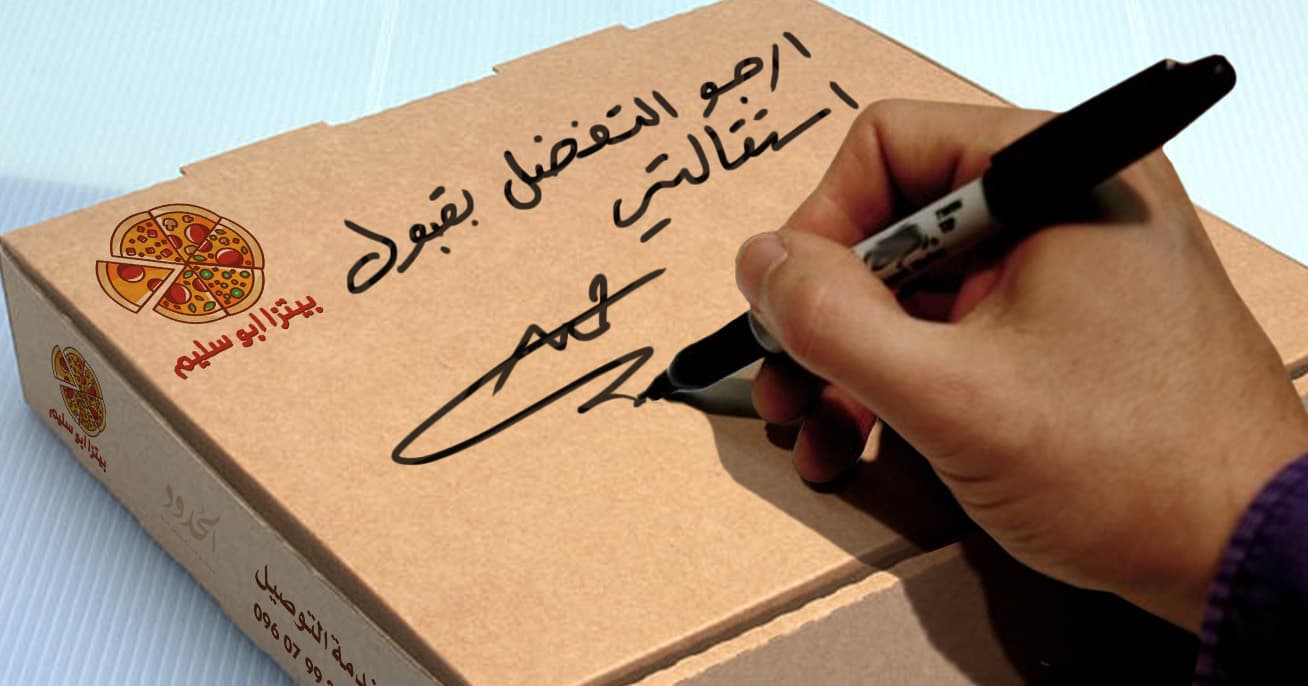 ارجو التفضل بقبول
استقالتي
بيتزا ابو سليم
بيتزا ابو سليم
الحدود
خدمة التوصيل
096 07 99